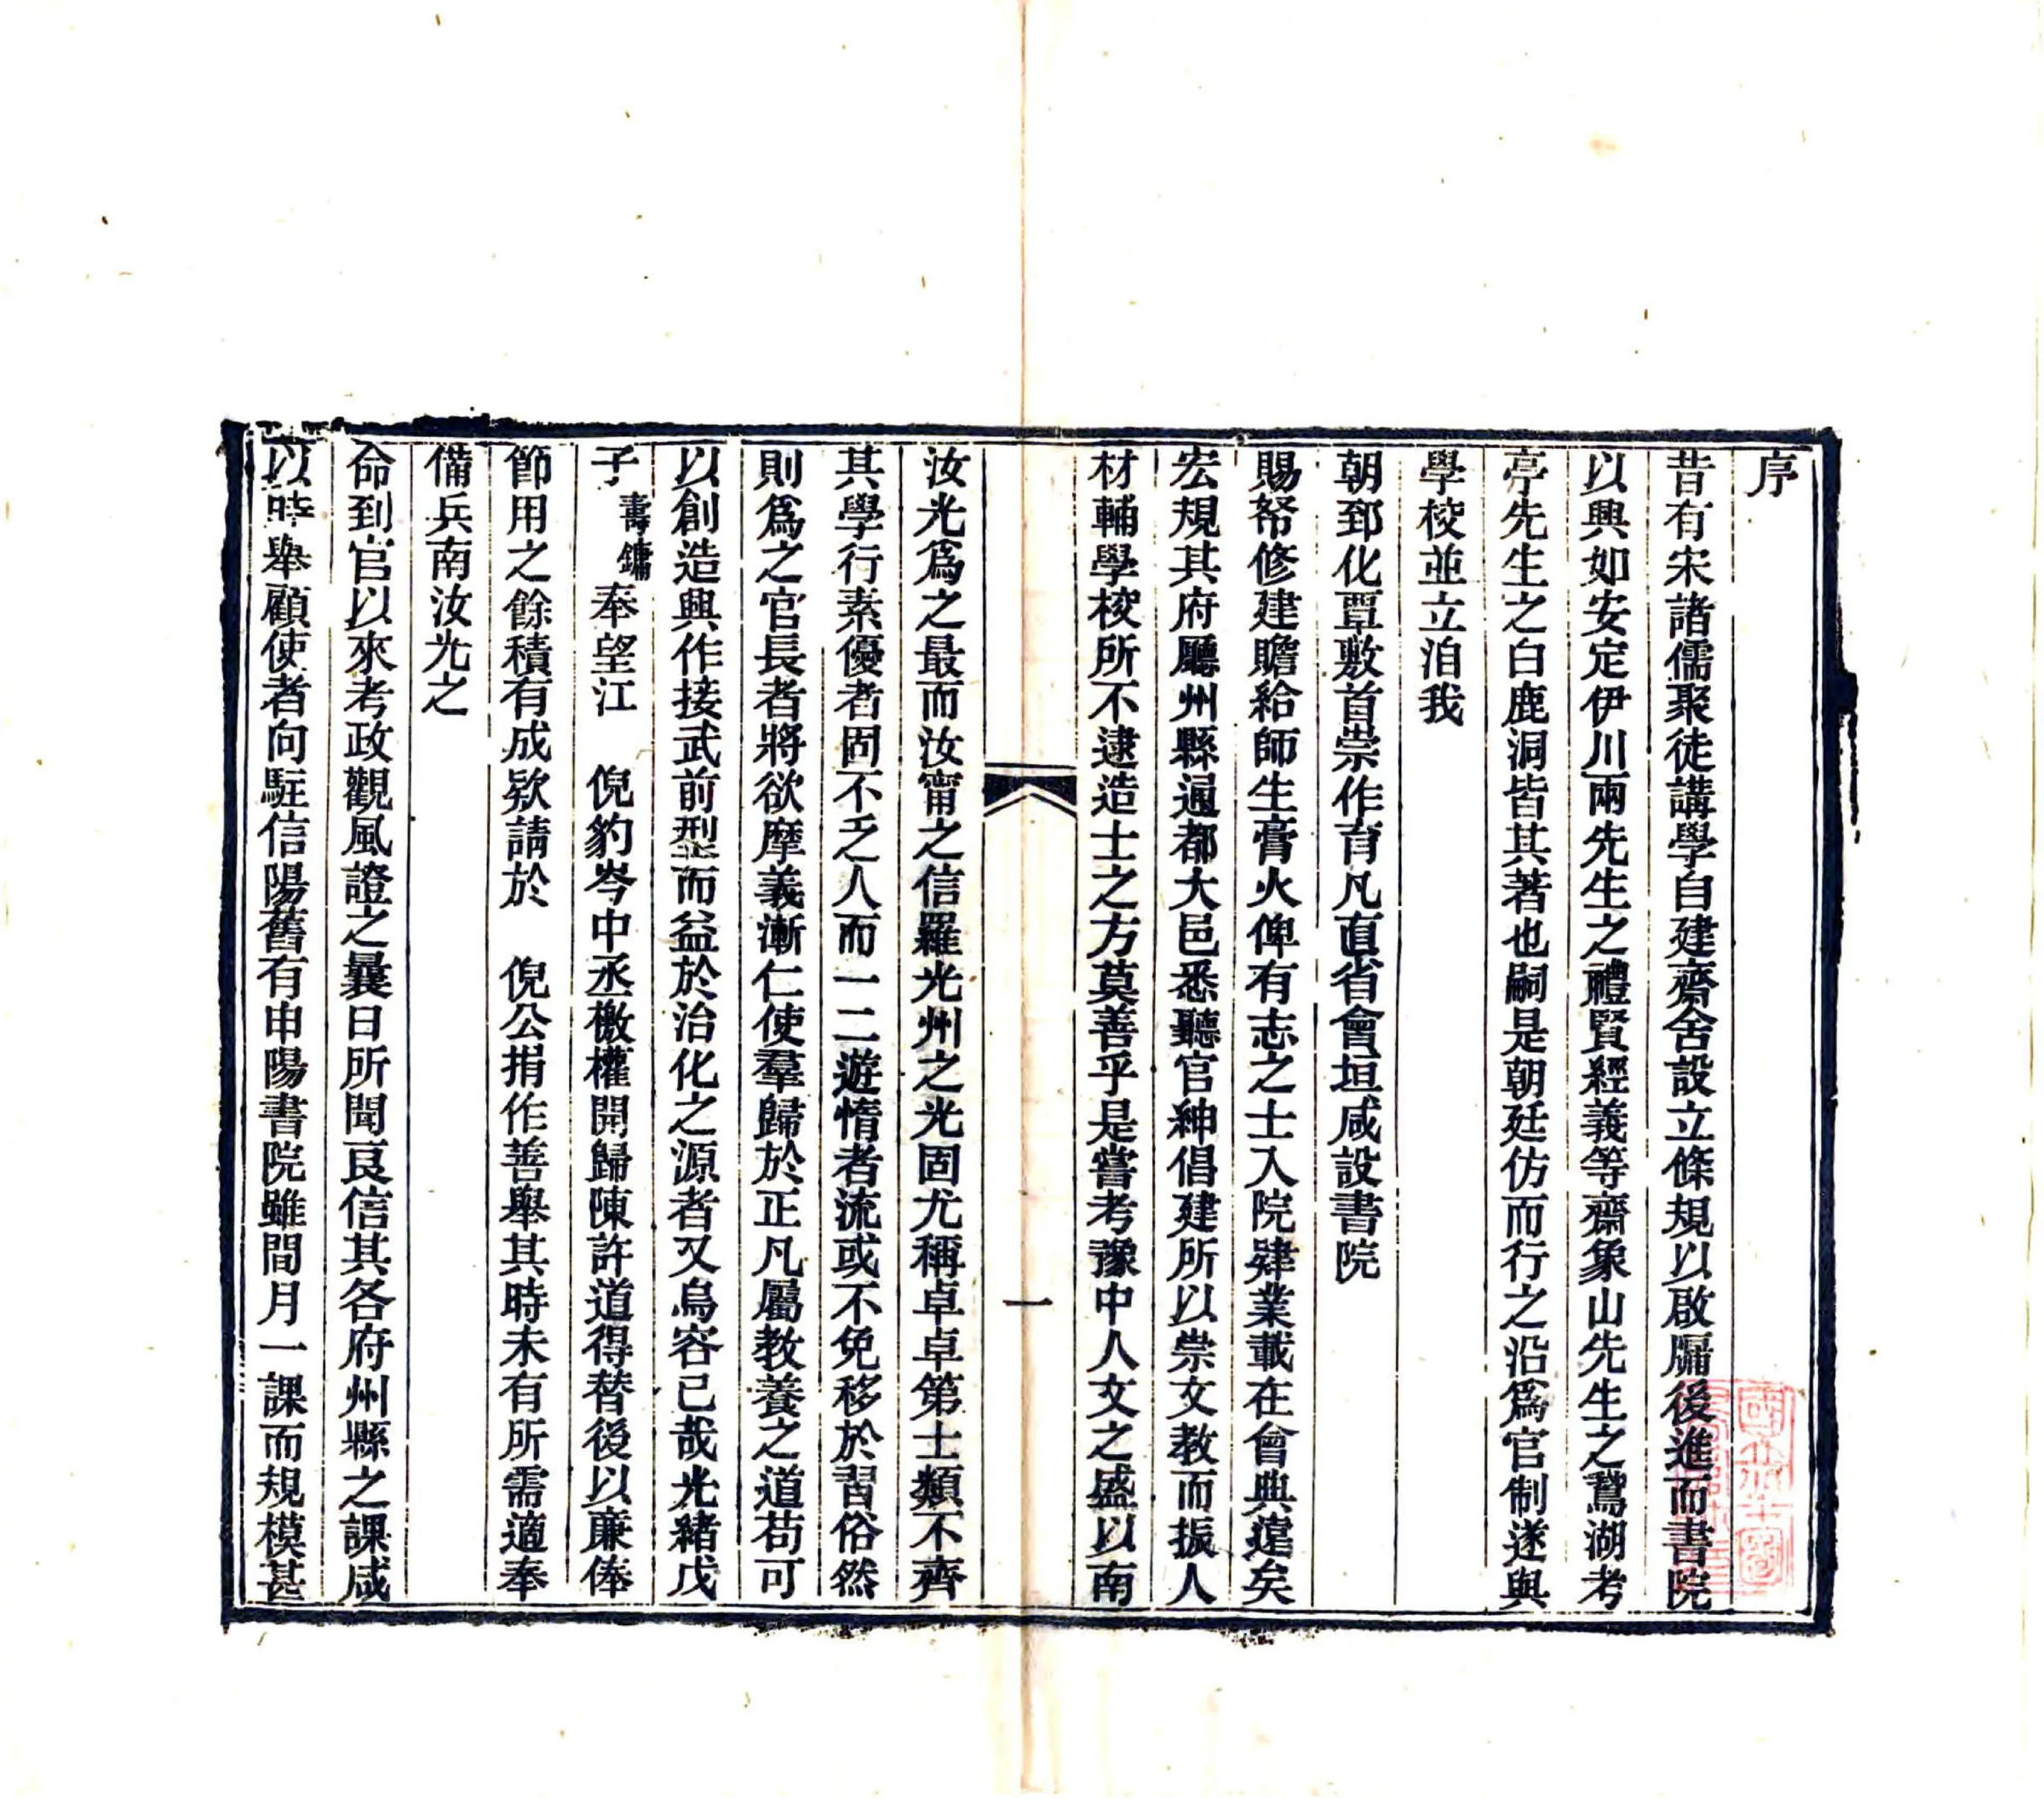 序
昔有宋諸儒聚徒講學自建齋舍設立條規以啟牖後進而書院
以興如安定伊川兩先生之禮賢經義等齋象山先生之鵞湖考
亭先生之白鹿洞皆其著也嗣是朝廷仿而行之沿爲官制遂與
學校並立洎我
朝郅化覃敷首崇作育凡直省會垣咸設書院
賜帑修建贍給師生膏火俾有志之士入院肄業載在會典遑矣
宏規其府廳州縣通都大邑悉聽官紳倡建所以崇文教而振人
材輔學校所不逮造士之方莫善乎是嘗考豫中人文之盛以南
一
汝光爲之最而汝甯之信羅光州之光固尤稱卓卓第士類不齊
其學行素優者固不乏人而一二遊惰者流或不免移於習俗然
則爲之官長者將欲摩義漸仁使羣歸於正凡屬教養之道苟可
以創造興作接武前型而益於治化之源者又烏容已哉光緒戊
子壽鏞奉望江 倪豹岑中丞檄權開歸陳許道得替後以廉俸
節用之餘積有成欵請於 倪公捐作善舉其時未有所需適奉
備兵南汝光之
命到官以來考政觀風證之曩日所聞良信其各府州縣之課咸
以時舉顧使者向駐信陽舊有申陽書院雖間月一課而規模甚